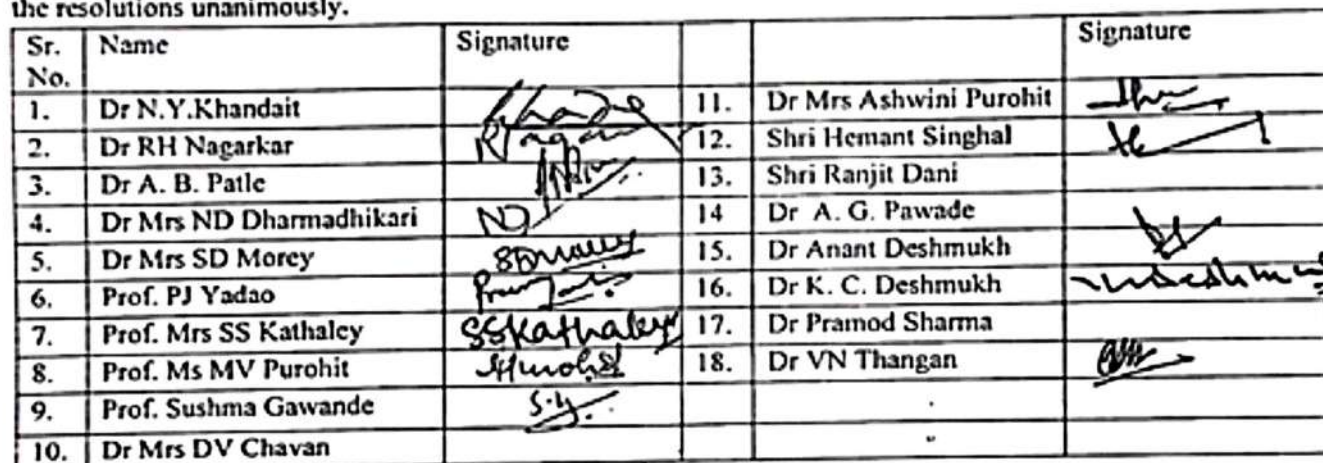 the resolutions unanimously.
Sr. No. Name Signature Signature
1. Dr N.Y.Khandait 11. Dr Mrs Ashwini Purohit
2. Dr RH Nagarkar 12. Shri Hemant Singhal
3. Dr A. B. Patle 13. Shri Ranjit Dani
4. Dr Mrs ND Dharmadhikari ND 14 Dr A. G. Pawade
5. Dr Mrs SD Morey 15. Dr Anant Deshmukh
6. Prof. PJ Yadao 16. Dr K. C. Deshmukh
7. Prof. Mrs SS Kathaley SSKathaley 17. Dr Pramod Sharma
8. Prof. Ms MV Purohit 18. Dr VN Thangan
9. Prof. Sushma Gawande S.G.
10. Dr Mrs DV Chavan